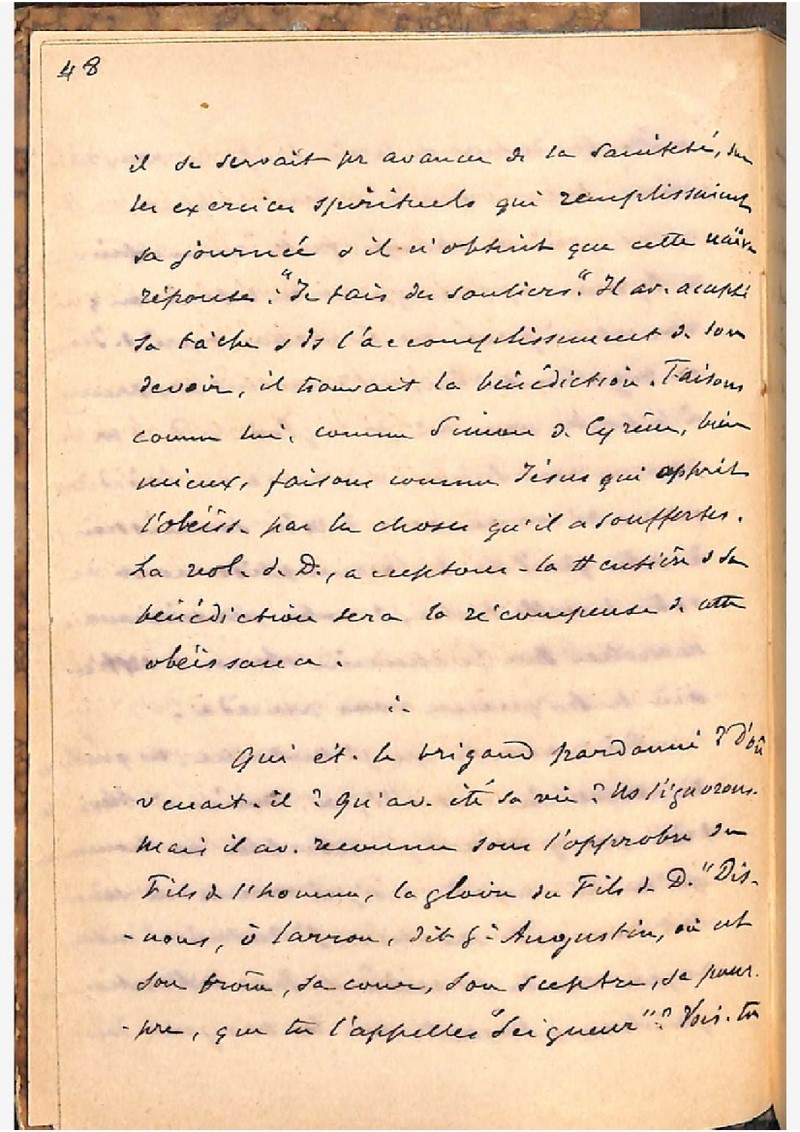 48
il se servait pr avancer ds la sainteté, sur
les exercices spirituels qui remplissaient
sa journée & il n'obtint que cette naïve
réponse : "Je fais des souliers." Il av. accepté
sa tâche & ds l'accomplissement de son
devoir, il trouvait la bénédiction. Faisons
comme lui, comme Simon de Cyrène, bien
mieux, faisons comme Jésus qui apprit
l'obéiss. par les choses qu'il a souffertes.
La vol. de D., acceptons-la tt entière & sa
bénédiction sera la récompense de cette
obéissance.
Qui ét. le brigand pardonné ? D'où
venait-il ? Qu'av. été sa vie ? Ns l'ignorons.
Mais il av. reconnu sous l'opprobre du
Fils de l'homme, la gloire du Fils de D. "Dis-
-nous, ô larron, dit St Augustin, où est
son trône, sa cour, son sceptre, sa pour-
-pre, que tu l'appelles "Seigneur" ? Vois-tu